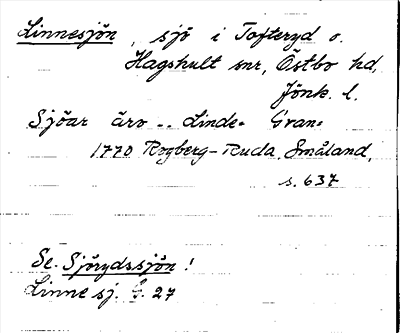 Linnesjön, sjö i Tofteryd o.
Hagshult snr, Östbo hd,
Jönk. l.
Sjöar äro .. Linde= Gran=
1770 Rogberg-Ruda, Småland,
s. 637
Se. Sjörydssjön!
Linne sj. G. 27